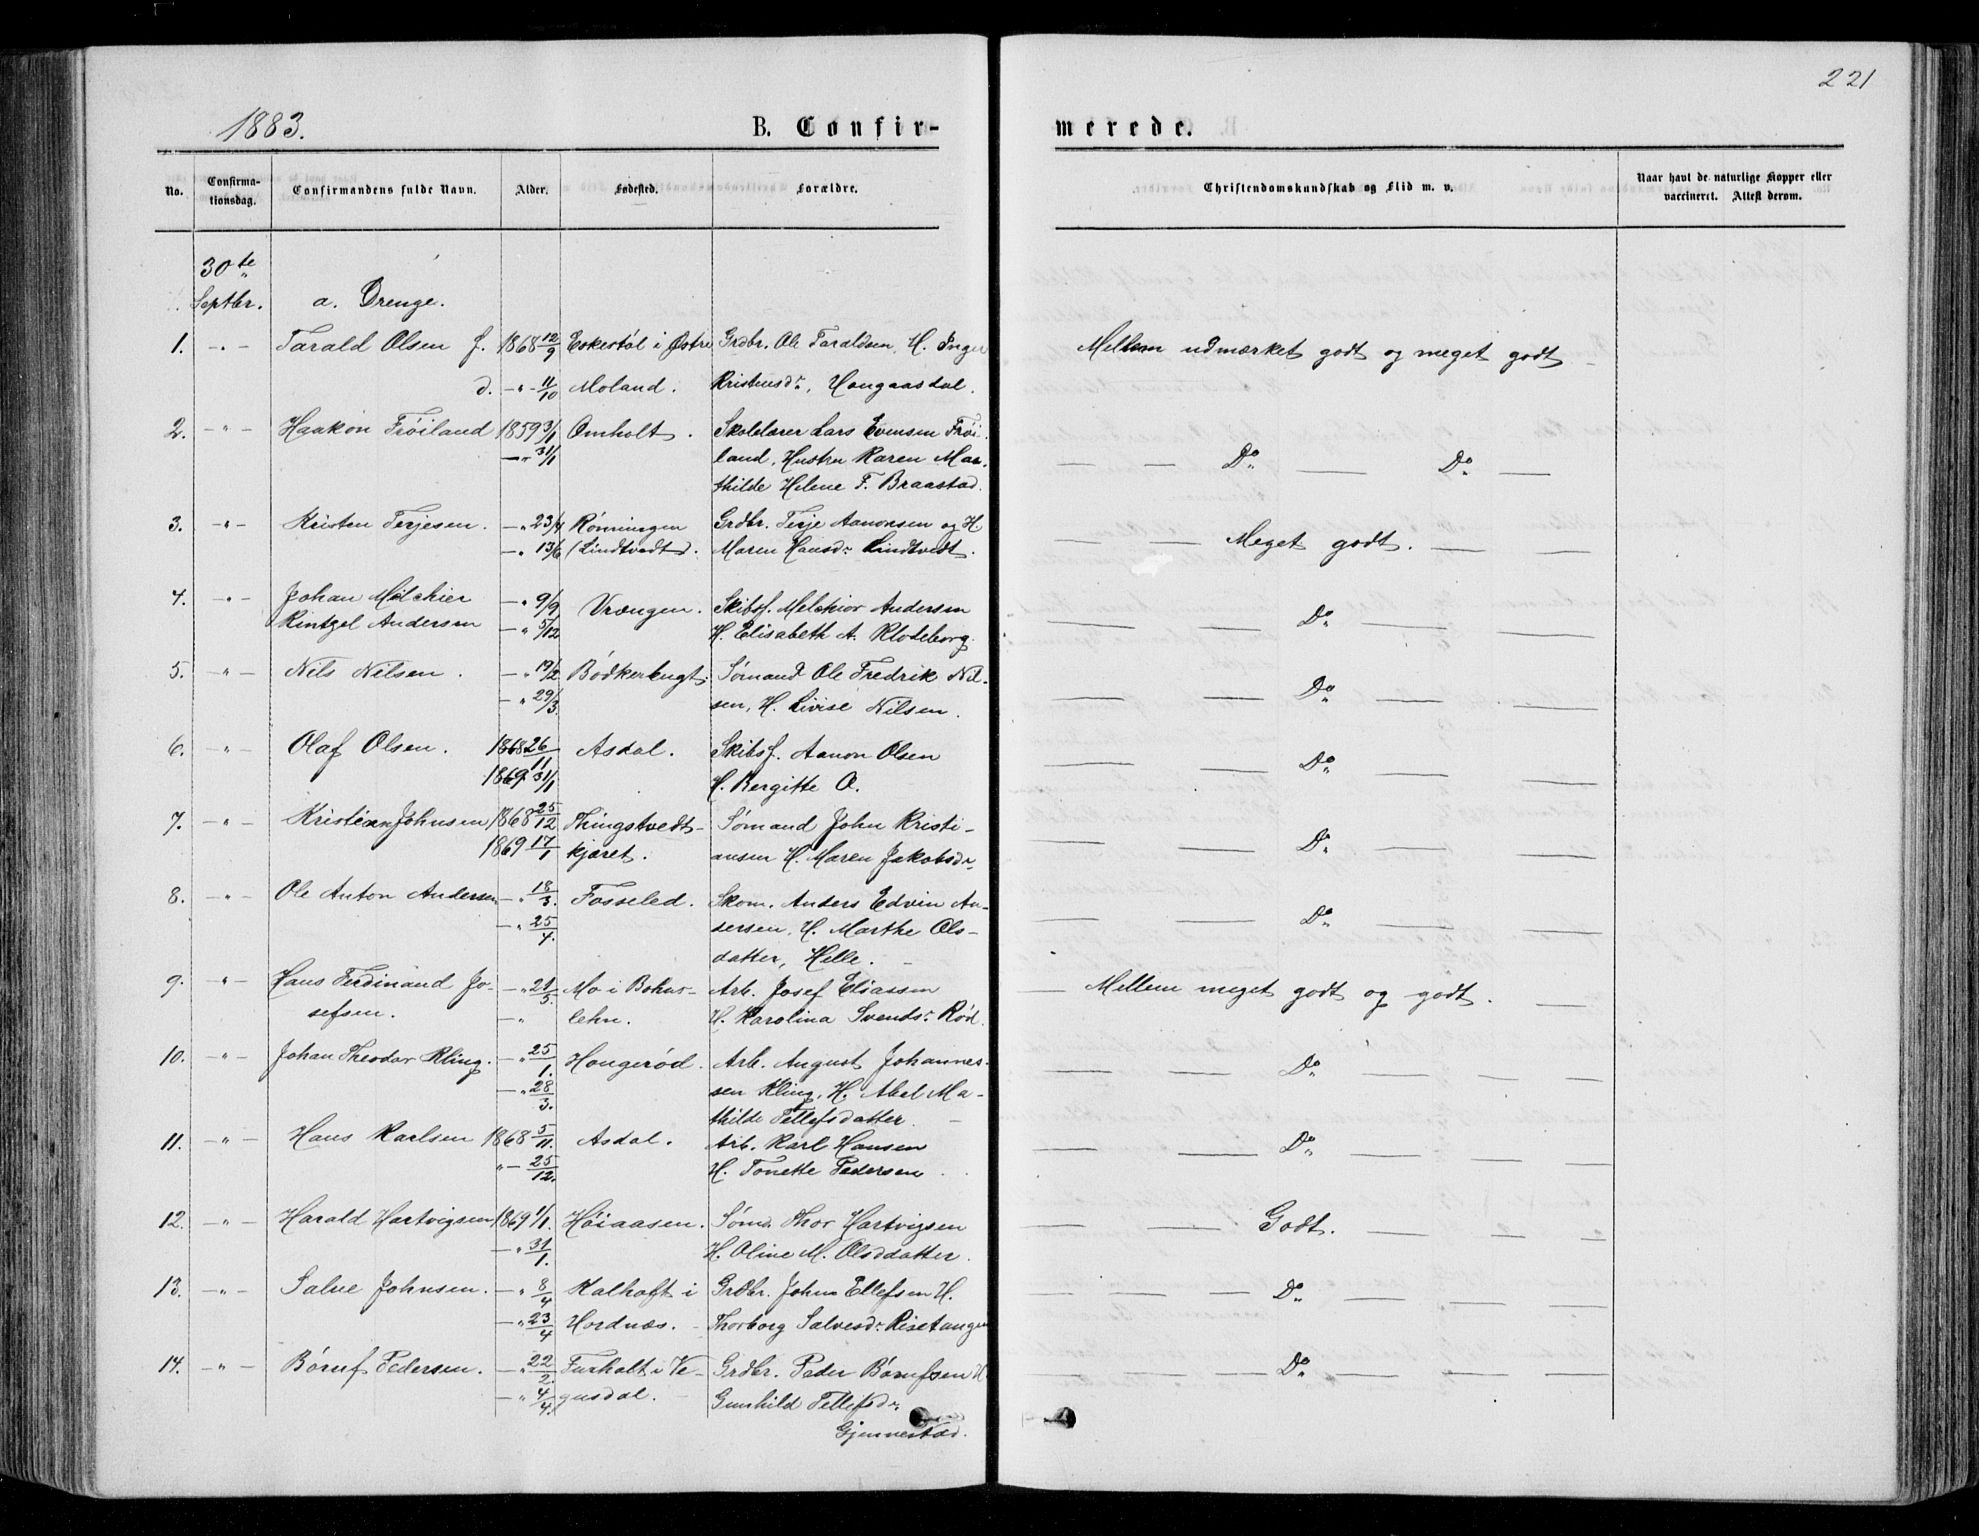 221
1883.
B. Confir-
merede.
No.
Confirma-
tionsdag.
Confirmandens fulde Navn.
Alder.
Fødested.
Forældre.
Christendomskundskab og Flid m. v.
Naar havt de naturlige Kopper eller
vaccineret. Attest derom.
30te
Septbr. a. Drenge.
1. -"- Tarald Olsen f. 1868 12/9 Eskestøl i Østre Grdbr. Ole Taraldsen, H. Inger Mellem udmærket godt og meget godt
d. -"- 11/10 Moland. Kristensdr., Haugaasdal.
2. -"- Haakon Frøiland 1859 3/1 Omholt. Skolelærer Lars Evensen Frøi-
-"- 31/1 land, Hustru Karen Ma- — — Do — Do —
thilde Helene F. Braastad.
3. -"- Kristen Terjesen. -"- 23/4 Rønningen Grdbr. Terje Aanonsen og H.
-"- 13/6 (Lindtvedt). Maren Hansdr Lindtvedt. — — Meget godt. — —
4. -"- Johan Melchior -"- 9/9 Vrængen. Skibsf. Melchior Andersen
Rintzel Andersen -"- 5/12 H. Elisabeth A. Klodeborg. — — Do — —
5. -"- Nils Nilsen. -"- 19/2 Bødkerbugt. Sømand Ole Fredrik Nil-
-"- 29/3. sen, H. Livise Nilsen. — — Do — —
6. -"- Olaf Olsen. 1868 26/11 Asdal. Skibsf. Aanon Olsen
1869 31/1 H. Bergitte O. — — Do — —
7. -"- Kristian Johnsen 1868 25/12 Thingstvedt- Sømand John Kristi-
1869 17/1 kjæret. ansen H. Maren Jakobsdr — — Do — —
8. -"- Ole Anton Andersen -"- 18/3. Fosseled. Skom. Anders Edvin An-
-"- 25/4. dersen, H. Marthe Ols- — — Do — —
datter, Hille.
9. -"- Hans Ferdinand Jo- -"- 21/5 Mo i Bohus- Arb. Josef Eliassen — Mellem meget godt og godt. —
sefsen. -"- lehn. H. Karolina Svendsdr Rød.
10. -"- Johan Theodor Kling. -"- 25/1. Haugerød. Arb. August Johannes-
-"- 28/3. sen Kling, H. Abel Ma- — — Do — —
thilde Tellefsdatter.
11. -"- Hans Karlsen 1868 5/11. Asdal. Arb. Karl Hansen
"- 25/12. H. Tonette Pedersen — — Do — —
12. -"- Harald Hartvigsen 1869 1/1. Høiaasen. Sømd. Thor Hartvigsen
-"- 31/1. H. Oline M. Olsdatter. — — Godt. — —
13. -"- Salve Johnsen. -"- 8/4 Kalhoft i Grdbr. John Ellefsen H.
-"- 23/4 Hordnæs. Thorborg Salvesdr Risetangen — — Do — —
14. -"- Børuf Pedersen. -"- 22/2. Furholt i Ve- Grdbr. Peder Børufsen H.
-"- 4/4. gusdal. Gunhild Tellefsdr — — Do — —
Gjennestad.